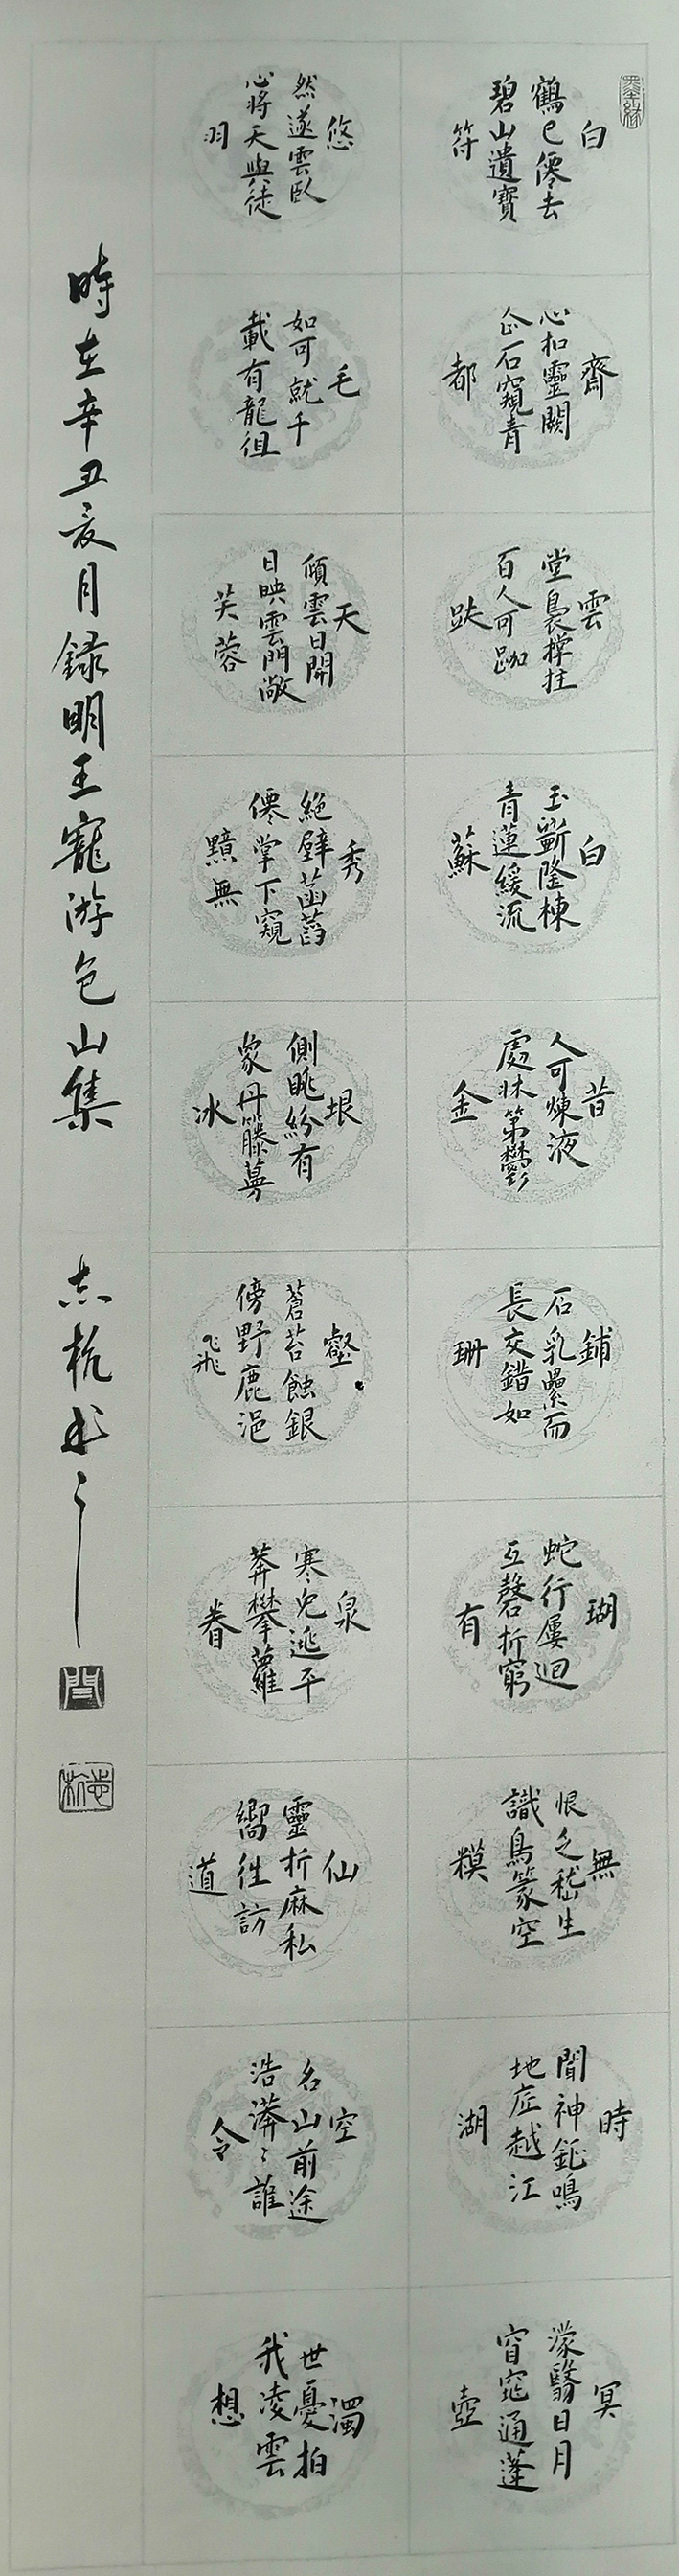 白
鶴已僊去
碧山遺寶
符
齋
心扣靈關
企石窺青
都
雲
堂裊撑拄
百人可跏
趺
白
玉斲隆棟
青蓮緩流
蘇
昔
人可煉液
處牀第鬱
金
鋪
石乳纍而
長交錯如
珊
瑚
蛇行屢迴
互磬折窮
有
無
恨乏嵇生
識鳥篆空
糢
時
聞神鉦鳴
地底越江
湖
冥
濛翳日月
窅窕通蓬
壺
悠
然遂雲臥
心將天與徒
羽
毛
如可就千
載有龍徂
天
傾雲日開
日映雲門敞
芙蓉
秀
絕壁菡萏
僊掌下窺
黯無
垠
側眺紛有
象丹籐蔓
冰
壑
蒼苔蝕銀
傍野鹿浥
飛
泉
寒兔逃平
莽攀蘿
眷
仙
靈折麻私
嚮往訪
道
名山前途
空
浩漭〻誰
令
濁
世憂拍
我凌雲
想
時在辛丑亥月録明王寵游包山集
志杭書